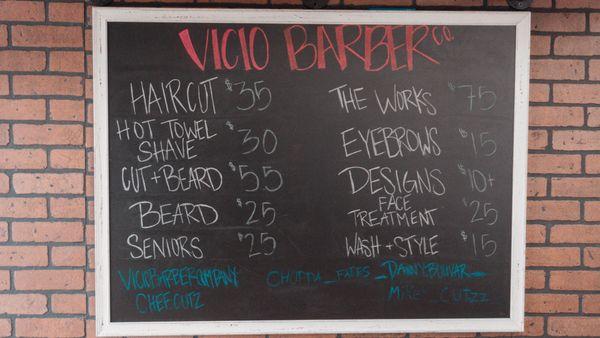 VICIO BARBER CO.
HAIRCUT $35
HOT TOWEL
SHAVE $30
CUT + BEARD $55
BEARD $25
SENIORS $25
THE WORKS $75
EYEBROWS $15
DESIGNS $10+
FACE
TREATMENT $25
WASH + STYLE $15
VICIOBARBERCOMPANY
CHEF.CUTZ
_DANNYEBOLIVAR_
MIKE_CUTZZ